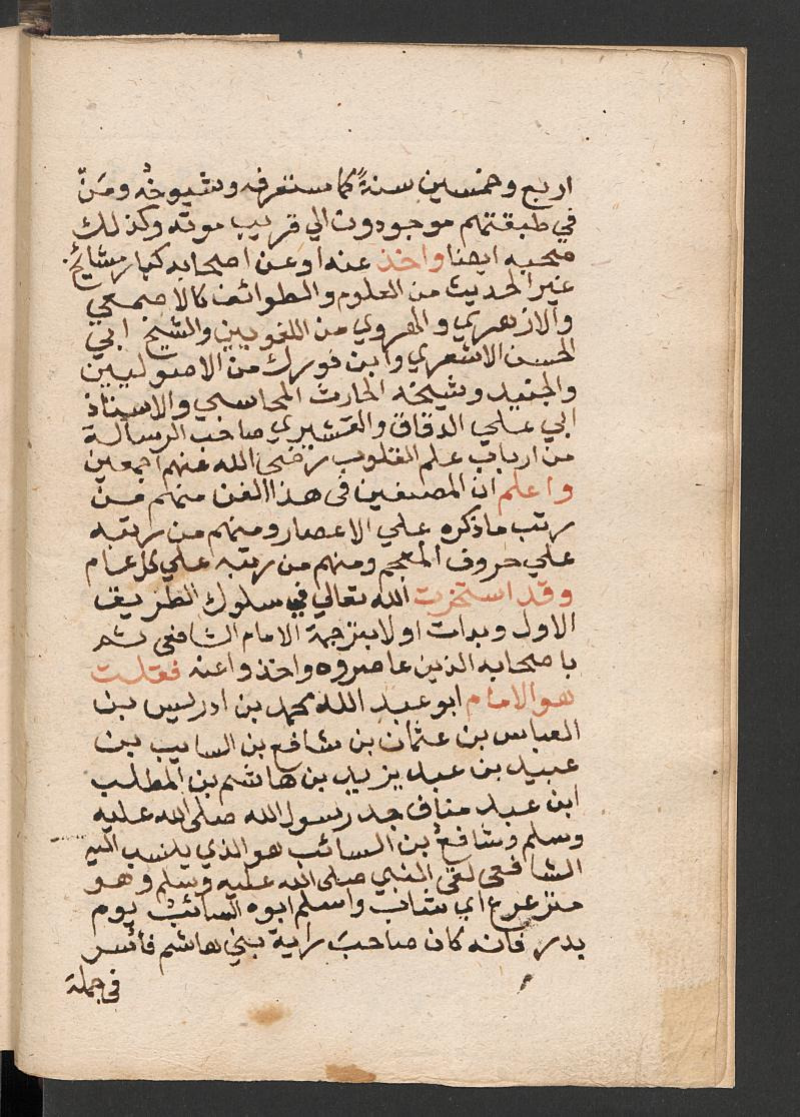 اربع وخمسين سنةً كما ستعرفه وشيوخُه ومَنْ
في طبقتهم موجودون الي قريب موته وكذلك
صحبه ايضا واخذ عنه او عن اصحابه كبار مشائخ
غير الحديث من العلوم والطوائف كالاصمعي
والازهري والهروي من اللغويين والشيخ ابي
الحسن الاشعري وابن فورك من الاصوليين
والجنيد وشيخه الحارث المحاسبي والاستاذ
ابي علي الدقاق والقشيري صاحب الرسالة
من ارباب علم القلوب رضى الله عنهم اجمعين
واعلم ان المصنفين فى هذا الفن منهم من
رتب ماذكره علي الاعصار ومنهم من رتبه
علي حروف المعجم ومنهم من رتبه علي كل عام
وقد استخرت الله تعالي في سلوك الطريق
الاول وبدات اولا بترجمة الامام الشافعى ثم
باصحابه الذين عاصروه واخذوا عنه فقلت
هو الامام ابو عبد الله محمد بن ادريس بن
العباس بن عثمان بن شافع بن السايب بن
عبيد بن عبد يزيد بن هاشم بن المطلب
ابن عبد مناف جد رسول الله صلى الله عليه
وسلم وشافع بن السائب هو الذي ينسب اليه
الشافعى لقى النبي صلى الله عليه وسلم وهو
مترعرع اي شاب واسلم ابوه السائب يوم
بدر فانه كان صاحبَ راية بني هاشم فأُسر
فى جملة